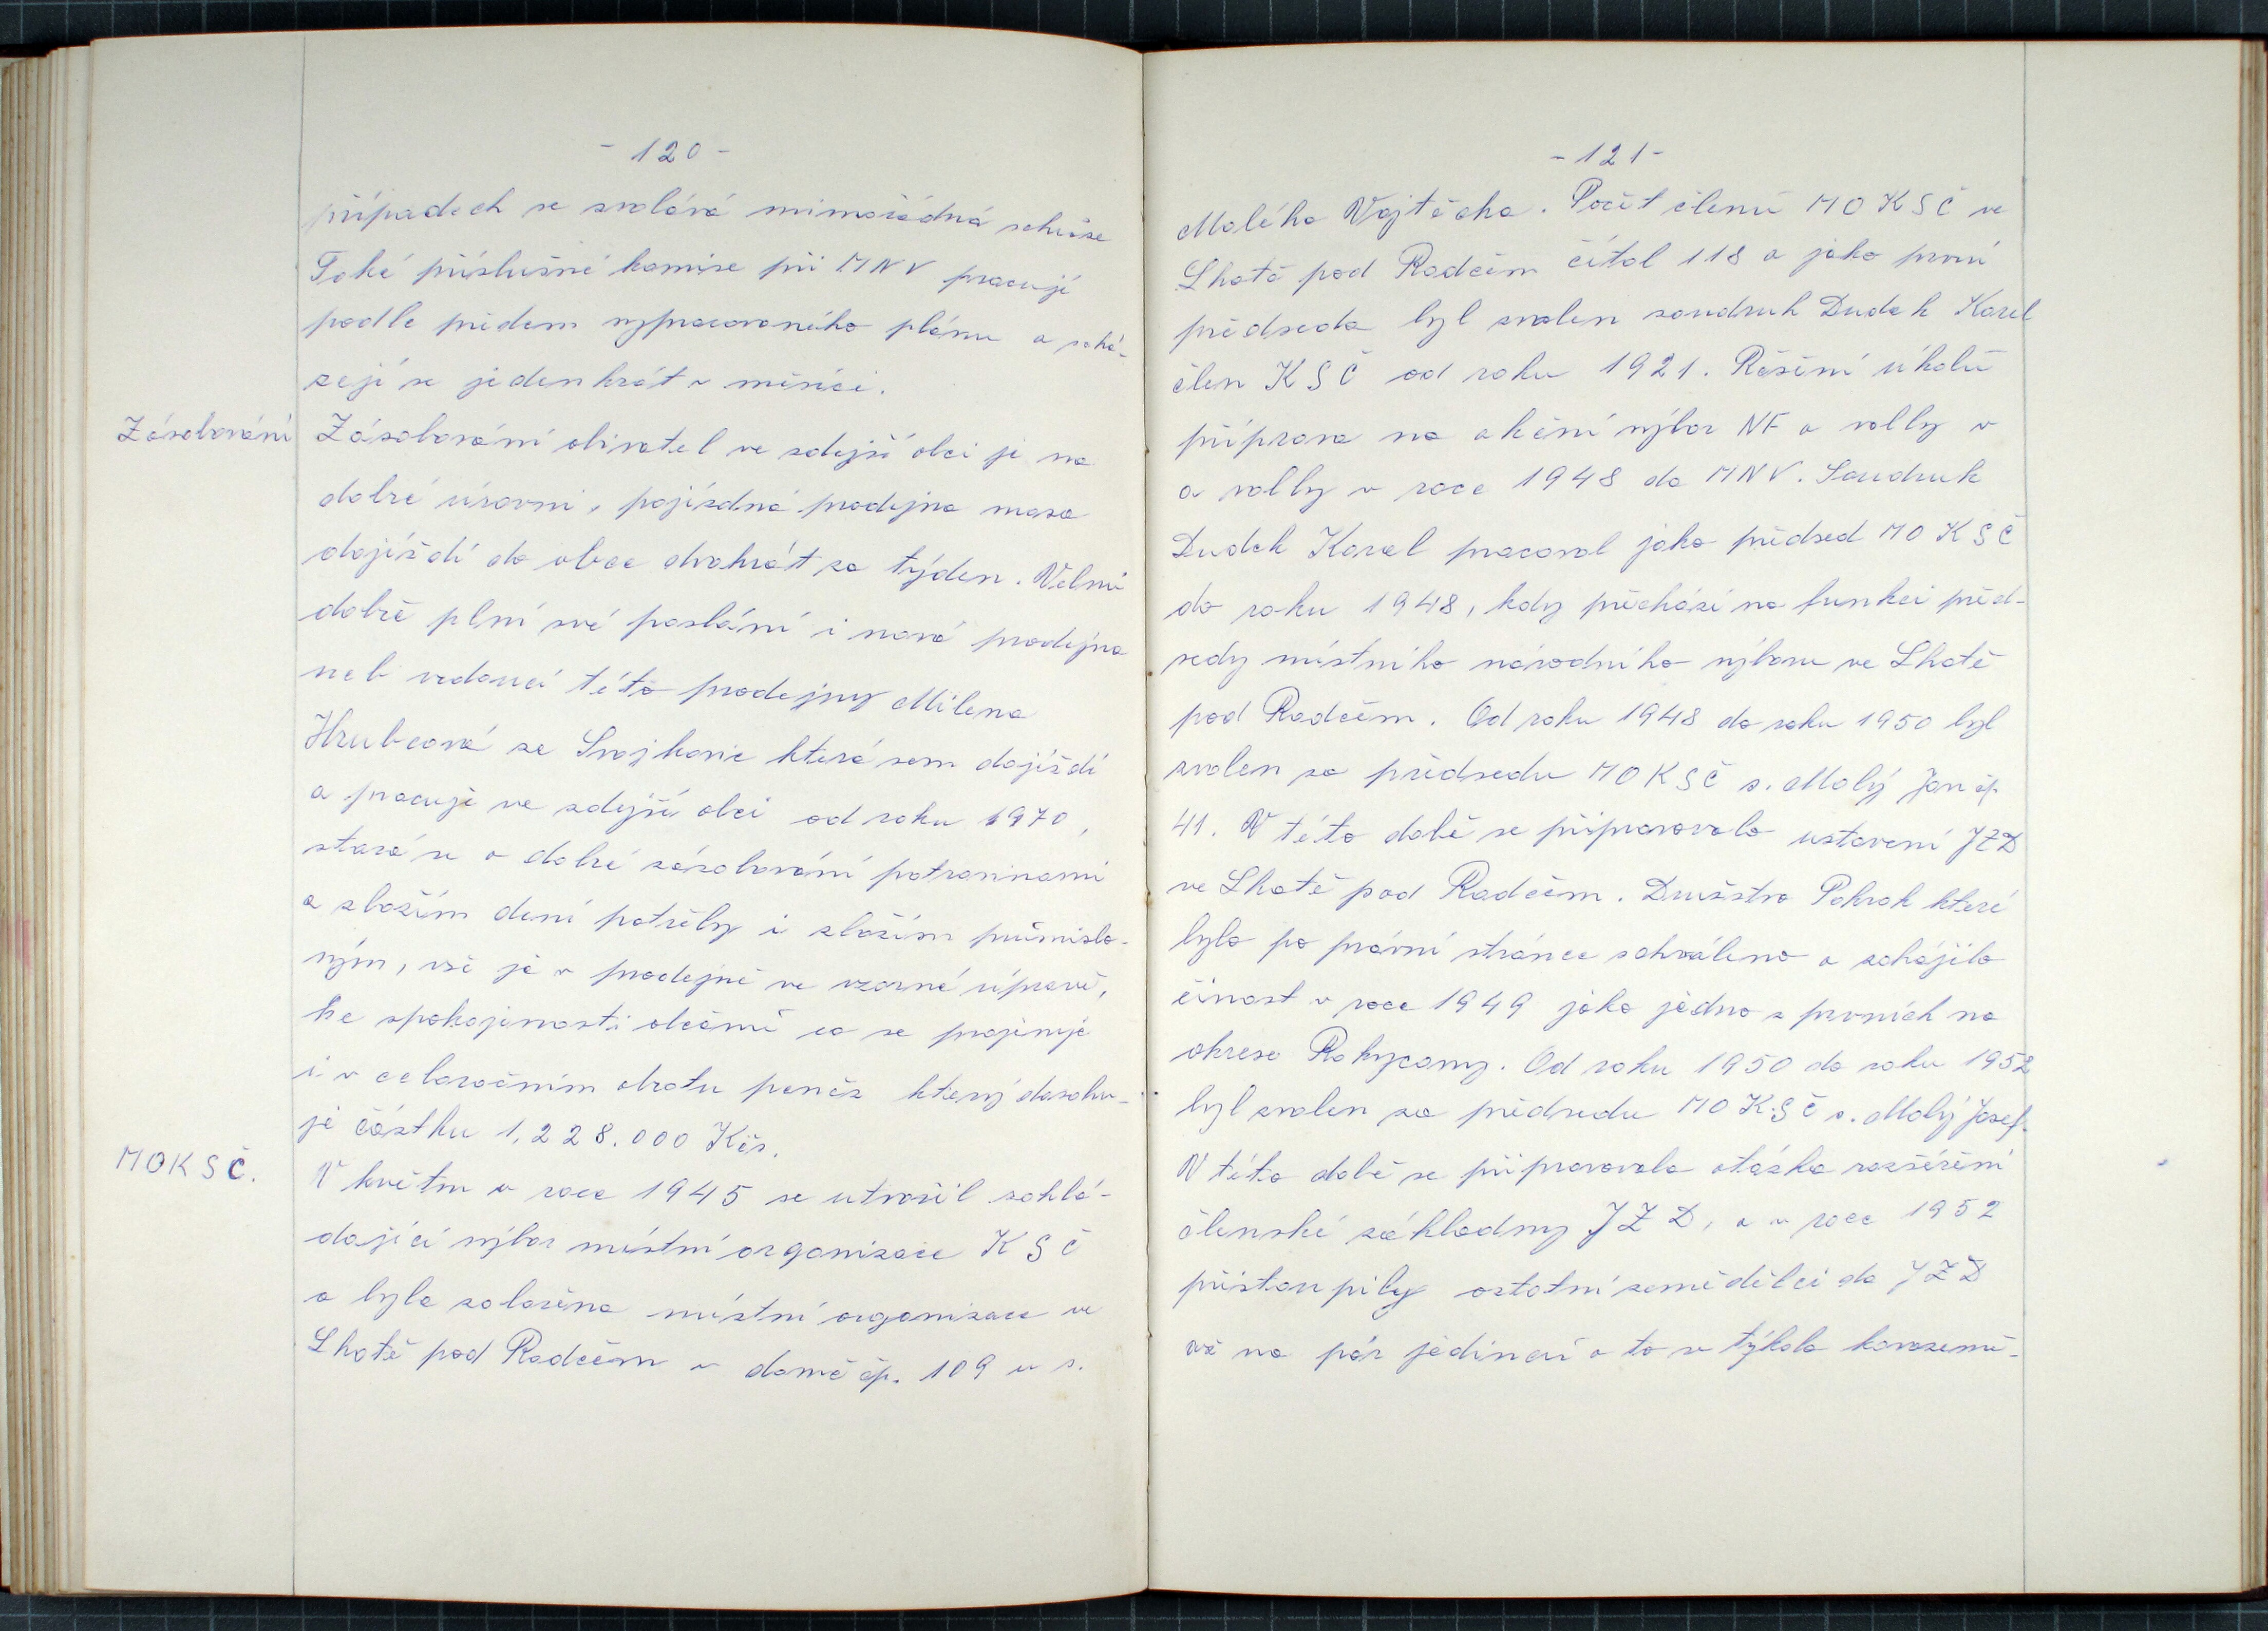 - 120 -
případech se svolává mimořádná schůze
Také příslušné komise při MNV pracují
podle předem vypracovaného plánu a schá-
zejí se jedenkrát v měsíci.
Zásobování
Zásobování obivatel ve zdejší obci je na
dobré úrovni, pojízdná prodejna masa
dojíždí do obce dvakrát za týden. Velmi
dobře plní své poslání i nová prodejna
neb vedoucí této prodejny Milena
Hrubcová ze Svojkovic která sem dojíždí
a pracuje ve zdejší obci od roku 1970,
stará se o dobré zásobování potravinami
a zbožím dení potřeby i zbožím průmislo-
vým, vše je v prodejně ve vzorné úpravě,
ke spokojenosti občanů co se projevuje
i v celoročním obratu peněz který dosahu-
je částku 1,228.000 Kčs.
MOKSČ.
V květnu v roce 1945 se utvořil zakla-
dající výbor místní organizace KSČ
a byla založena místní organizace ve
Lhotě pod Radčem v domě čp. 109 u s.
- 121 -
Malého Vojtěcha. Počet členů MO KSČ ve
Lhotě pod Radčem čítal 118 a jako první
předseda byl zvolen soudruh Dudek Karel
člen KSČ od roku 1921. Řešení úkolů
příprava na akční výbor NF a volby v
a volby v roce 1948 do MNV. Soudruh
Dudek Karel pracoval jako předsed MO KSČ
do roku 1948, kdy přechází na funkci před-
sedy místního národního výboru ve Lhotě
pod Radčem. Od roku 1948 do roku 1950 byl
zvolen za předsedu MO KSČ s. Malý Jan čp.
41. V této době se připravovalo ustavení JZD
ve Lhotě pod Radčem. Družstvo Pokrok které
bylo po právní stránce schváleno a zahájilo
činost v roce 1949 jako jedno z prvních na
okrese Rokycany. Od roku 1950 do roku 1952
byl zvolen za předsedu MO KSČ s. Malý Josef.
V této době se připravovala otázka rozšíření
členské základny JZD, a v roce 1952
přistoupily ostatní zemědělci do JZD
až na pár jedinců a to se týkalo kovozemě-